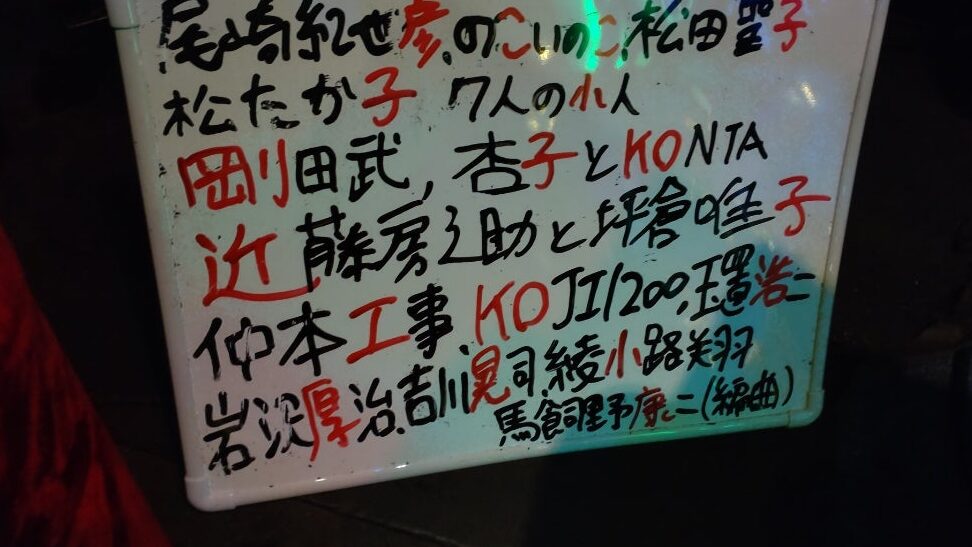 尾崎紀世彦、のこいのこ、松田聖子
松たか子 7人の小人
剛田武, 杏子とKONTA
近藤房之助と坪倉唯子
仲本工事、KOJI1200,玉置浩二
岩沢厚治、吉川晃司、綾小路翔
馬飼野康二(編曲)